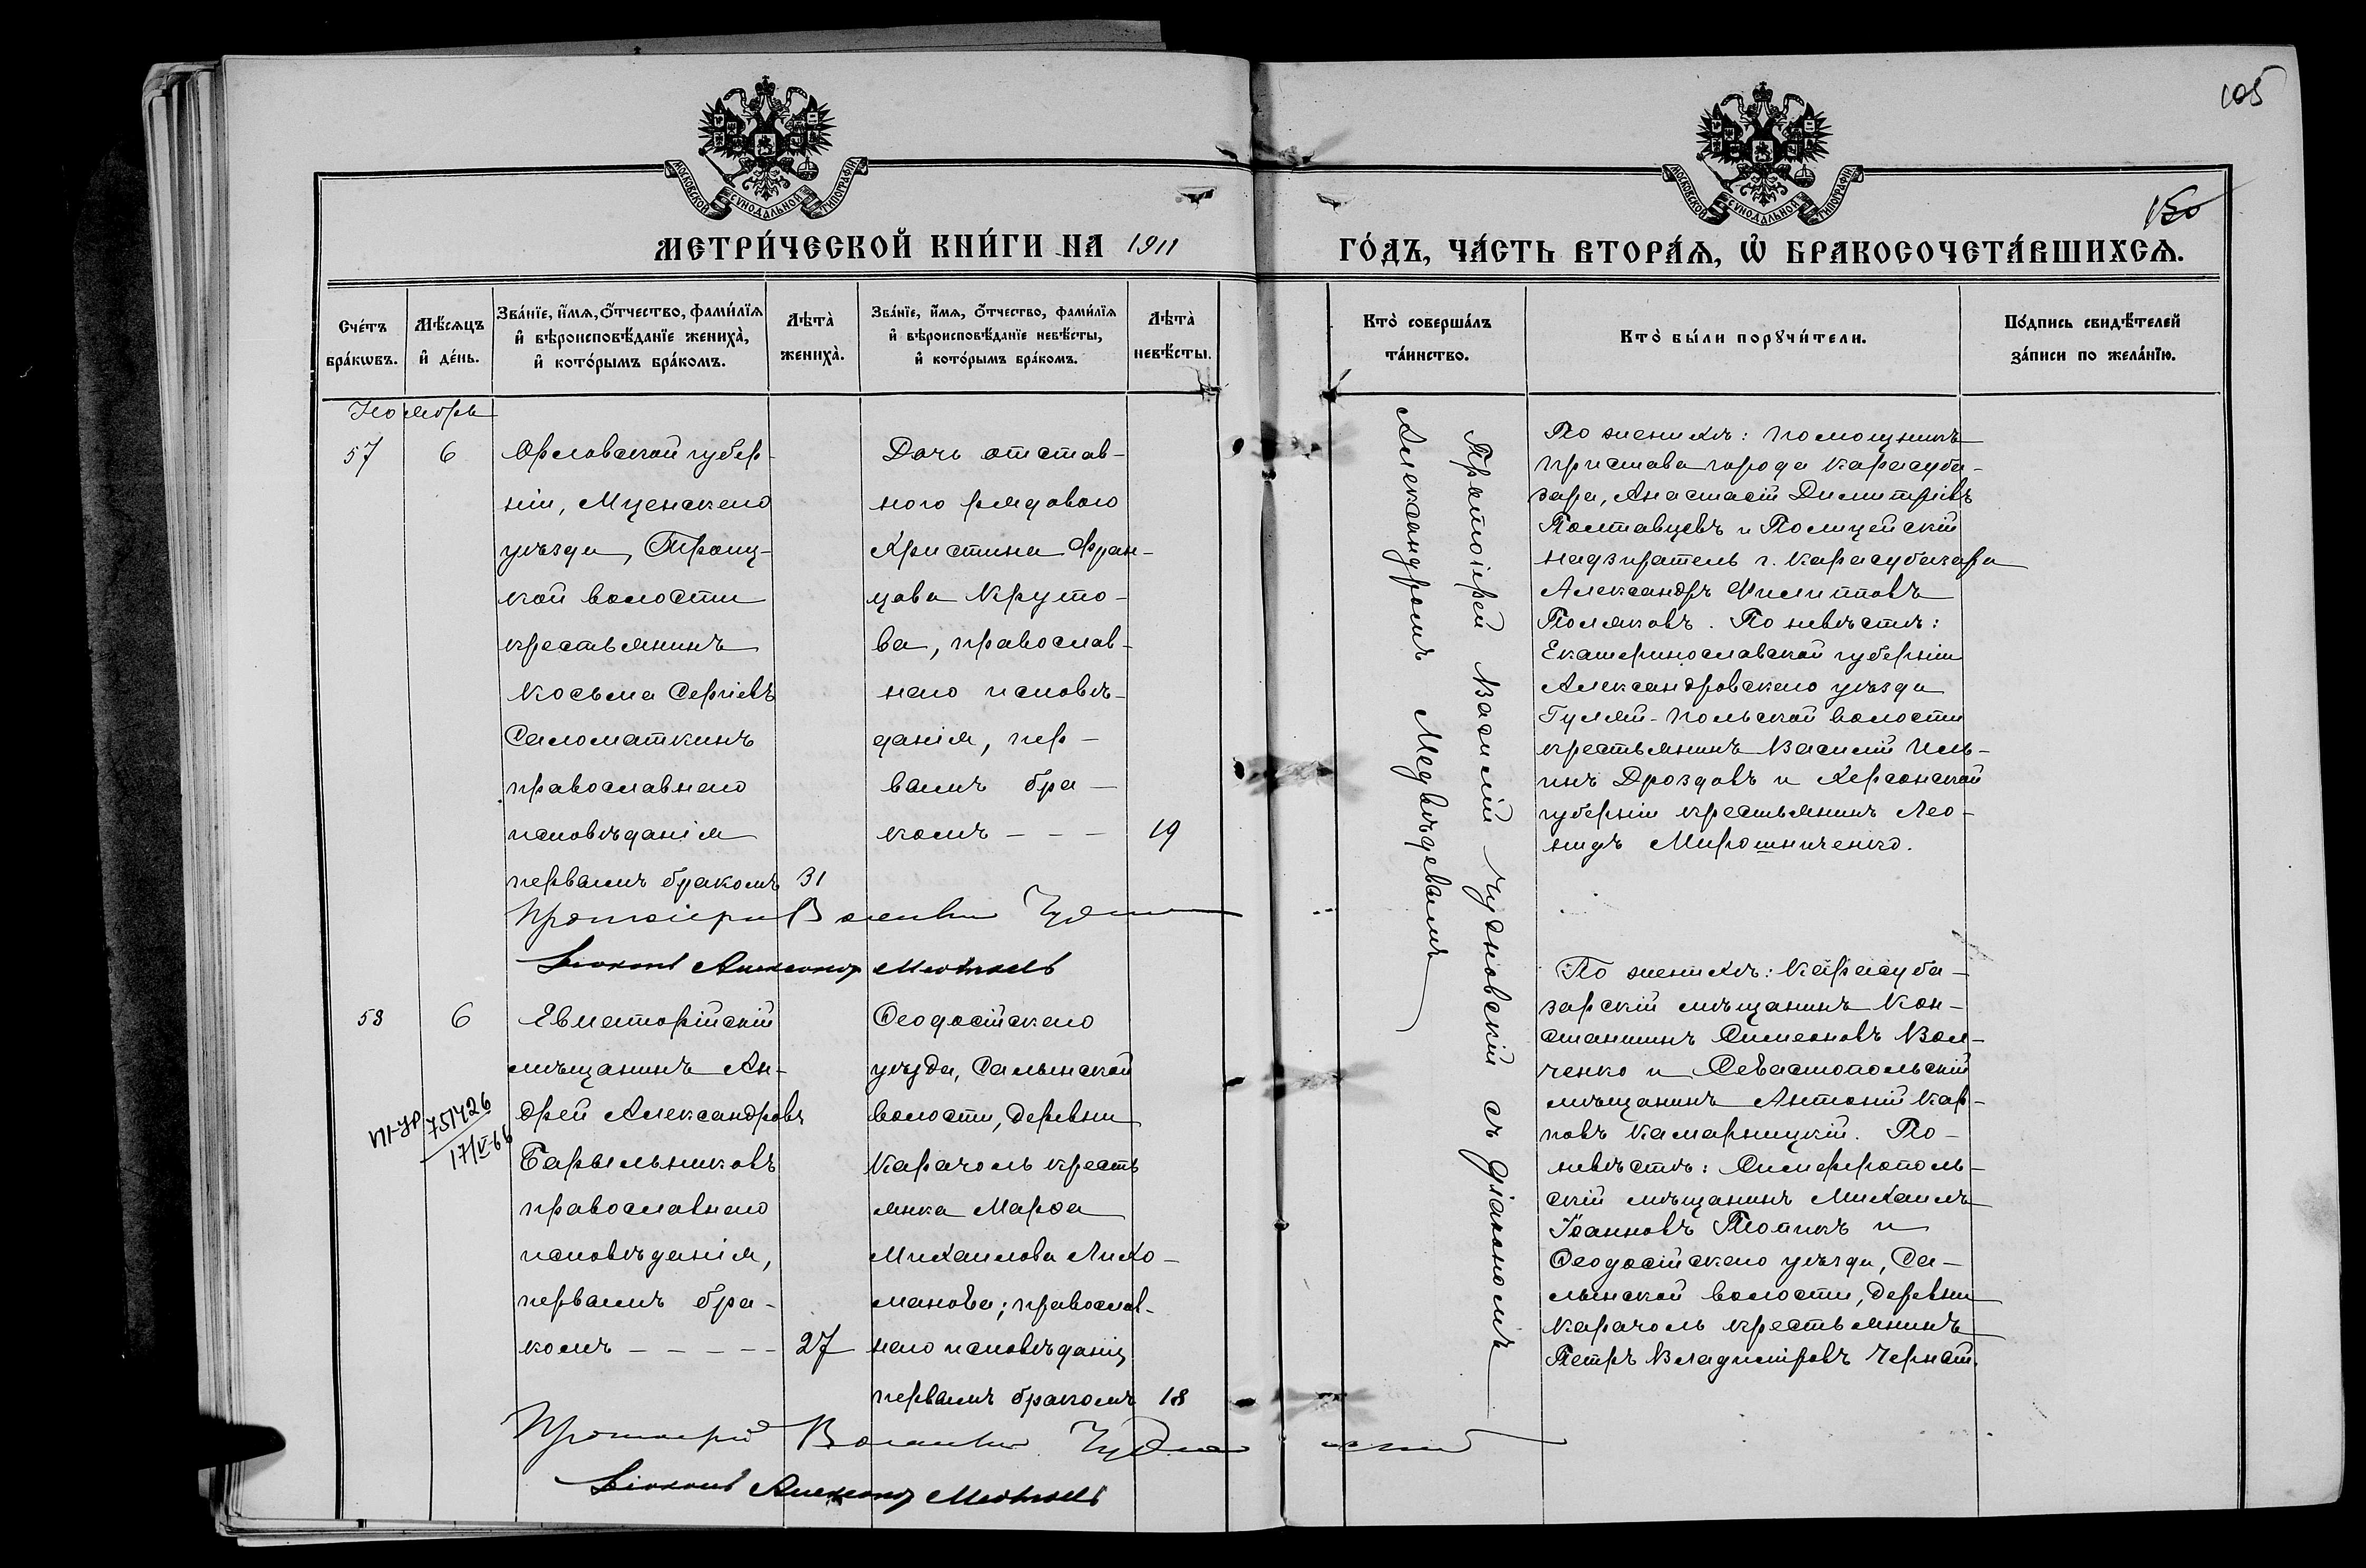 105
150
МОСКОВСКОЙ СѴНОДАЛЬНОЙ ТИПОГРАФІИ
МОСКОВСКОЙ СѴНОДАЛЬНОЙ ТИПОГРАФІИ
МЕТРИ́ЧЕСКОЙ КНИ́ГИ НА 1911
ГО́ДЪ, ЧА́СТЬ ВТОРА́Ѧ, Ѡ҆ БРАКОСОЧЕТА́ВШИХСѦ.
Сче́тъ бра́кѡвъ.
Мѣ́сѧцъ и҆ де́нь.
Зва́нїе, и҆́мѧ, о҆́тчество, фами́лїѧ и҆ вѣроисповѣ́данїе жениха̀, и҆ кото́рымъ бра́комъ.
Лѣта̀ жениха̀.
Зва́нїе, и҆́мѧ, о҆́тчество, фами́лїѧ и҆ вѣроисповѣ́данїе невѣ́сты, и҆ кото́рымъ бра́комъ.
Лѣта̀ невѣ́сты.
Кто̀ соверша́лъ та́инство.
Кто̀ бы́ли порꙋчи́тели.
По́дпись свидѣ́телей за́писи по жела́нїю.
Ноября
57
6
Орловской губер-
ніи, Мценскаго
уѣзда, Троиц-
кой волости
крестьянинъ
Косьма Сергіевъ
Саломаткинъ
православнаго
исповѣданія
первымъ бракомъ 31
Дочь отстав-
ного рядового
Христина Фран-
цова Круто-
ва, православ-
наго исповѣ-
данія, пер-
вымъ бра-
комъ - - - 19
Протоіерей Василій Чудновскій съ діакономъ
Александромъ Медвѣдевымъ
По женихѣ: помощникъ
пристава города Карасуба-
зара, Анастасій Димитріевъ
Полтавцевъ и Полицейскій
надзиратель г. Карасубазара
Александръ Филипповъ
Поляковъ. По невѣстѣ:
Екатеринославской губерніи
Александровскаго уѣзда
Гуляй-Польской волости
крестьянинъ Василій Иль-
инъ Дроздовъ и Херсонской
губерніи крестьянинъ Лео-
нидъ Мирошниченко.
Протоіерей Василій Чудновскій
Діаконъ Александръ Медвѣдевъ
58
6
751426
17/V-66
Евпаторійскій
мѣщанинъ Ан-
дрей Александровъ
Барыльниковъ
православнаго
исповѣданія,
первымъ бра-
комъ - - - - - 27
Ѳеодосійскаго
уѣзда, Салынской
волости, деревни
Карачоль кресть
янка Марѳа
Михаилова Лихо-
манова; православ-
наго исповѣданія
первымъ бракомъ 18
По женихѣ: Карасуба-
зарскій мѣщанинъ Кон-
стантинъ Симеоновъ Вол-
ченко и Севастопольскій
мѣщанинъ Антоній Кар-
повъ Камарницкій. По
невѣстѣ: Симферополь-
скій мѣщанинъ Михаилъ
Іоанновъ и
Ѳеодосійскаго уѣзда, Са-
лынской волости, деревни
Карачоль крестьянинъ
Петръ Владиміровъ Черный.
Протоіерей Василій Чудновскій
Діаконъ Александръ Медвѣдевъ